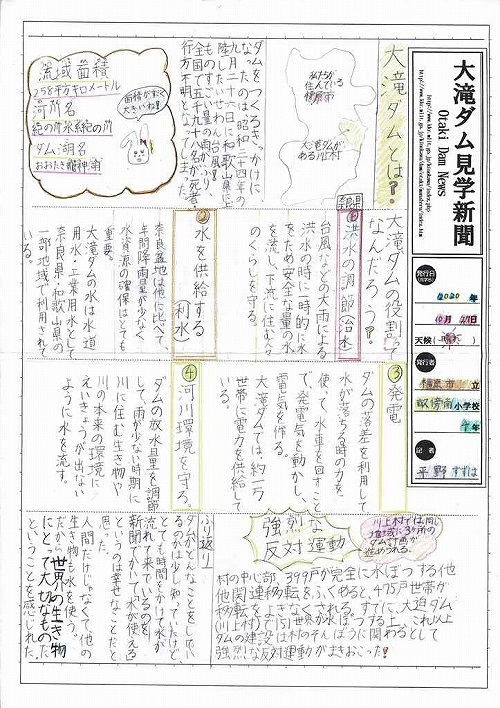 大滝ダム見学新聞
Otaki Dam News
発行日
2020年
10月27日
天候(晴れ)
発行者
橿原市立
畝傍南小学校
4年
記者
平野すずは
大滝ダムとは?
私たちが
住んでいる
橿原市
大滝ダムが
ある川上村
奈良県
ダムをつくるきっかけに
なったのは昭和三十四年の
九月二十六日に和歌山県に上
陸したいせわん台風
ものすごい量の雨がふり
全国で五千九十八名が死者・
行方不明となりました。
流域面積
258平方キロメートル
河所名
紀の川水系紀の川
ダム湖名
おおたき龍神湖
面積がすごく
大きいね!!
大滝ダムの役割って
なんだろう?
①洪水の調節(治水)
台風などの大雨による
洪水の時に一時的に水
をため安全な量の水
を流し、下流に住む人々
のくらしを守る。
②水を供給する
(利水)
奈良盆地は他と比べて、
年間降雨量が少なく
水資源の確保はとても
重要。
大滝ダムの水は水道
用水・工業用水として
奈良県・和歌山県の
一部地域で利用されて
いる。
③発電
ダムの落差を利用して
水が落ちる時の力を、
使って水車を回すこと
で、発電気を動かし、
電気を作る。
大滝ダムでは、約一万
世帯に電力を供給して
いる。
④河川環境を守る。
ダムの放水量を調節
して、雨が少ない時期に
川に住む生き物や
川の本来の環境に
えいきょうが出ない
ように水を流す。
強烈な
反対運動
川上村では同じ
地域に3ヶ所の
ダム計画が
進められる。
村の中心部、399戸が完全に水ぼつする他
他関連移転をふくめると、475戸世帯が
移転をよぎなくされる。すでに、大迫ダム
(川上村)で151世帯が水ぼつする上、これ以上
ダムの建設は村のそんぼうに関わるとして
強烈な反対運動がまきおこった!
ふり返り
ダムがどんなことをしてい
るのかは少し知っていたけど、
とても時間をかけて水が
流れて来ているのを
新聞にかいて水が使える
というのは幸せなことだと
思った。
人間だけじゃなくて他の
生き物も水を使う。
だから世界の生き物
にとって大切なものだ
ということを感じれた。